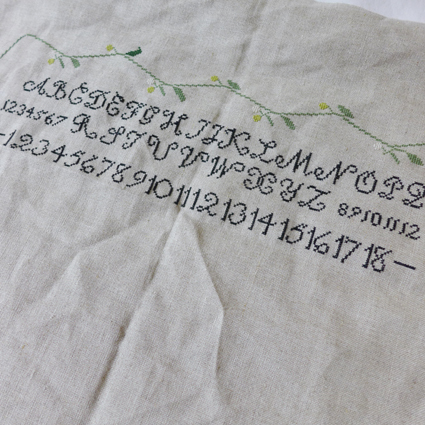 ABCDEFGHIJKLMNOPQ
1234567 RSTUVWXYZ 89101112
-123456789101112131415161718-